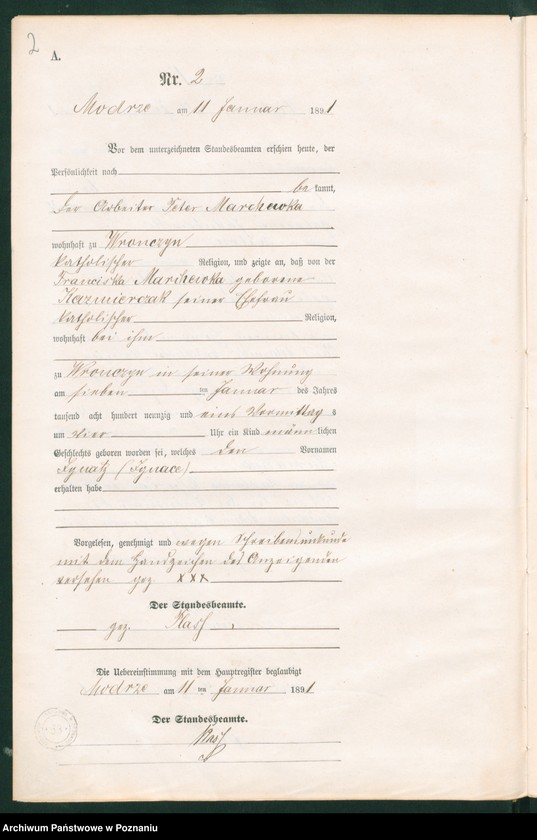 2
A.
Nr. 2
Modrze am 11 Januar 1891
Vor dem unterzeichneten Standesbeamten erschien heute, der
Persönlichkeit nach
be kannt,
Der Arbeiter Peter Marchewka
wohnhaft zu Wronczyn
katholischer Religion, und zeigte an, daß von der
Franciska Marchewka geborene
Kazmierczak seiner Ehefrau
katholischer Religion,
wohnhaft bei ihm
zu Wronczyn in seiner Wohnung
am sieben ten Januar des Jahres
tausend acht hundert neunzig und eins Vormittag s
um vier Uhr ein Kind männlichen
Geschlechts geboren worden sei, welches den Vornamen
Ignatz (Ignace)
erhalten habe
Vorgelesen, genehmigt und wegen Schreibensunkunde
mit dem Handzeichen des Anzeigenden
versehen gez XXX
Der Standesbeamte.
gez.
Die Uebereinstimmung mit dem Hauptregister beglaubigt
Modrze am 11 ten Januar 1891
Der Standesbeamte.
Archiwum Państwowe w Poznaniu